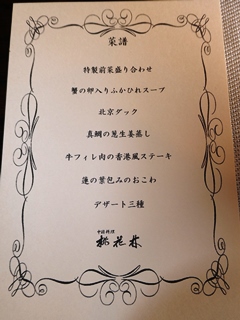 菜譜
特製前菜盛り合わせ
蟹の卵入りふかひれスープ
北京ダック
真鯛の葱生姜蒸し
牛フィレ肉の香港風ステーキ
蓮の葉包みのおこわ
デザート三種
中国料理
桃花林